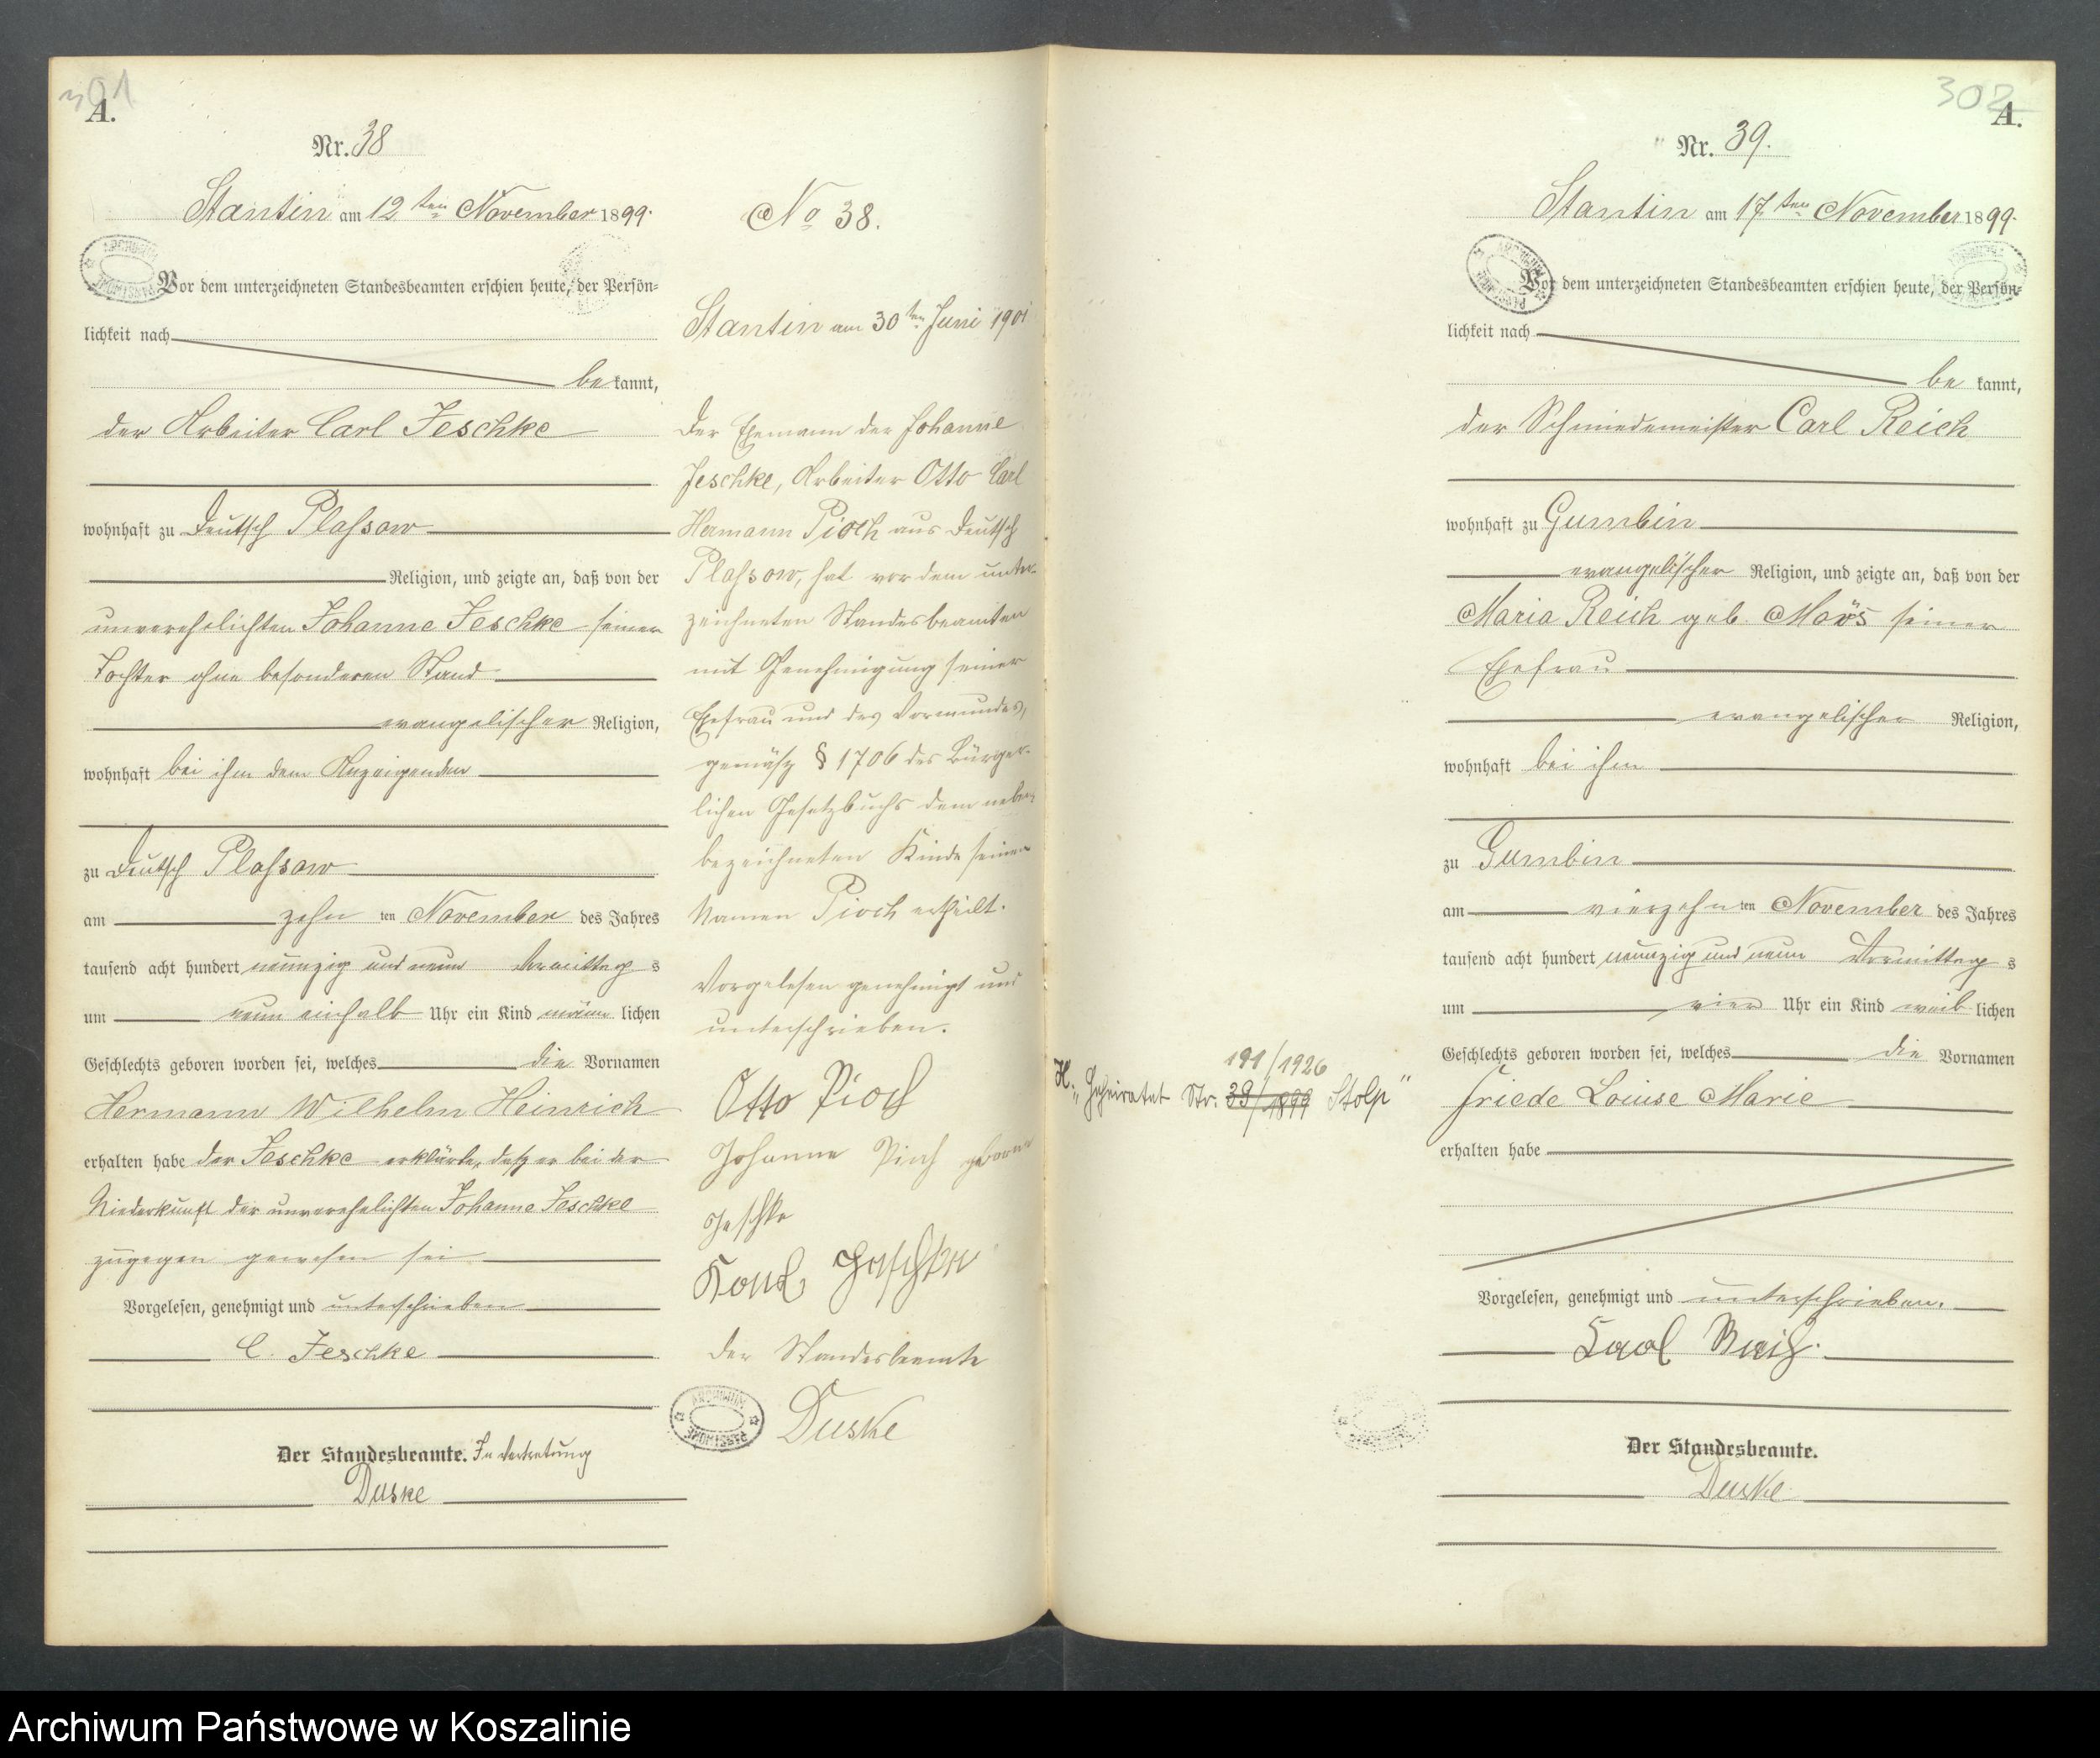 301
A.
Nr. 38
Stantin am 12ten November 1899.
Vor dem unterzeichneten Standesbeamten erschien heute, der Persön=
lichkeit nach
bekannt,
der Arbeiter Carl Jeschke
wohnhaft zu Deutsch Plassow
Religion, und zeigte an, daß von der
unverehelichten Johanne Jeschke seiner
Tochter ohne besonderen Stand
evangelischer Religion,
wohnhaft bei ihm dem Anzeigenden
zu Deutsch Plassow
am zehnten November des Jahres
tausend acht hundert neunzig und neun Vormittags
um neun einhalb Uhr ein Kind männlichen
Geschlechts geboren worden sei, welches die Vornamen
Hermann Wilhelm Heinrich
erhalten habe der Jeschke erklärte, daß er bei der
Niederkunft der unverehelichten Johanne Jeschke
zugegen gewesen sei
Vorgelesen, genehmigt und unterschrieben
C. Jeschke
Der Standesbeamte. In Vertretung
Duske
No 38.
Stantin am 30ten Juni 1901
Der Ehemann der Johanne
Jeschke, Arbeiter Otto Carl
Hermann Pioch aus Deutsch
Plassow, hat vor dem unter-
zeichneten Standesbeamten
mit Genehmigung seiner
Ehefrau und des Vormundes,
gemäß § 1706 des Bürger-
lichen Gesetzbuchs dem neben-
bezeichneten Kinde seinen
Namen Pioch ertheilt.
Vorgelesen genehmigt und
unterschrieben.
Otto Pioch
Johanne Pioch geborne
Jeschke
Karl Jeschke
Der Standesbeamte
Duske
ARCHIWUM
302
A.
Nr. 39.
Stantin am 17ten November 1899.
Vor dem unterzeichneten Standesbeamten erschien heute, der Persön=
lichkeit nach
bekannt,
der Schmiedemeister Carl Reich
wohnhaft zu Gumbin
evangelischer Religion, und zeigte an, daß von der
Maria Reich geb. seiner
Ehefrau
evangelischer Religion,
wohnhaft bei ihm
zu Gumbin
am vierzehnten November des Jahres
tausend acht hundert neunzig und neun Vormittags
um vier Uhr ein Kind weiblichen
Geschlechts geboren worden sei, welches die Vornamen
Friede Louise Marie
erhalten habe
Vorgelesen, genehmigt und unterschrieben.
Karl Reich.
Der Standesbeamte.
Duske
191/1926
H. "Geheiratet Nr. 39/1899 Stolp"
Archiwum Państwowe w Koszalinie